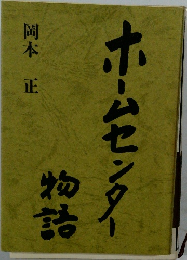 ホームセンター
物語
岡本 正